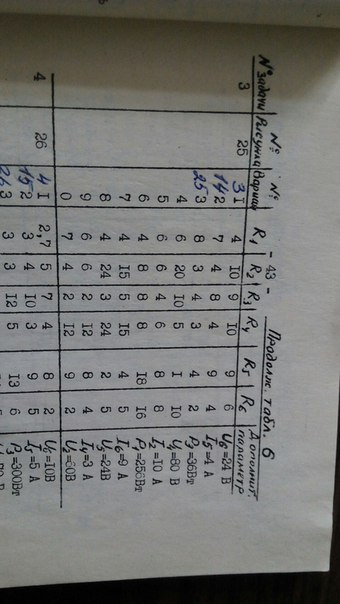 - 43 - Продолж. табл. 6
№ задачи № Рисунка № Вариан R1 R2 R3 R4 R5 R6 Дополнит. параметр
3 25 3 I 4 10 9 10 9 6 U6=24 В
14 2 7 4 8 4 9 4 I5=4 А
25 3 8 3 4 4 2 4 P3=36Вт
4 6 20 10 5 I 10 U1=80 В
5 6 6 4 6 8 8 I2=10 А
6 4 8 8 8 18 16 P1=256Вт
7 4 15 5 15 4 5 I6=9 А
8 4 24 3 24 2 5 U5=24В
9 6 6 2 12 8 4 I4=3 А
0 7 4 2 12 9 2 U2=60В
4 26 4 I 2,7 5 7 4 8 2 U6=10В
15 2 3 4 10 3 9 5 I5=5 А
26 3 3 3 12 5 13 6 P3=300Вт